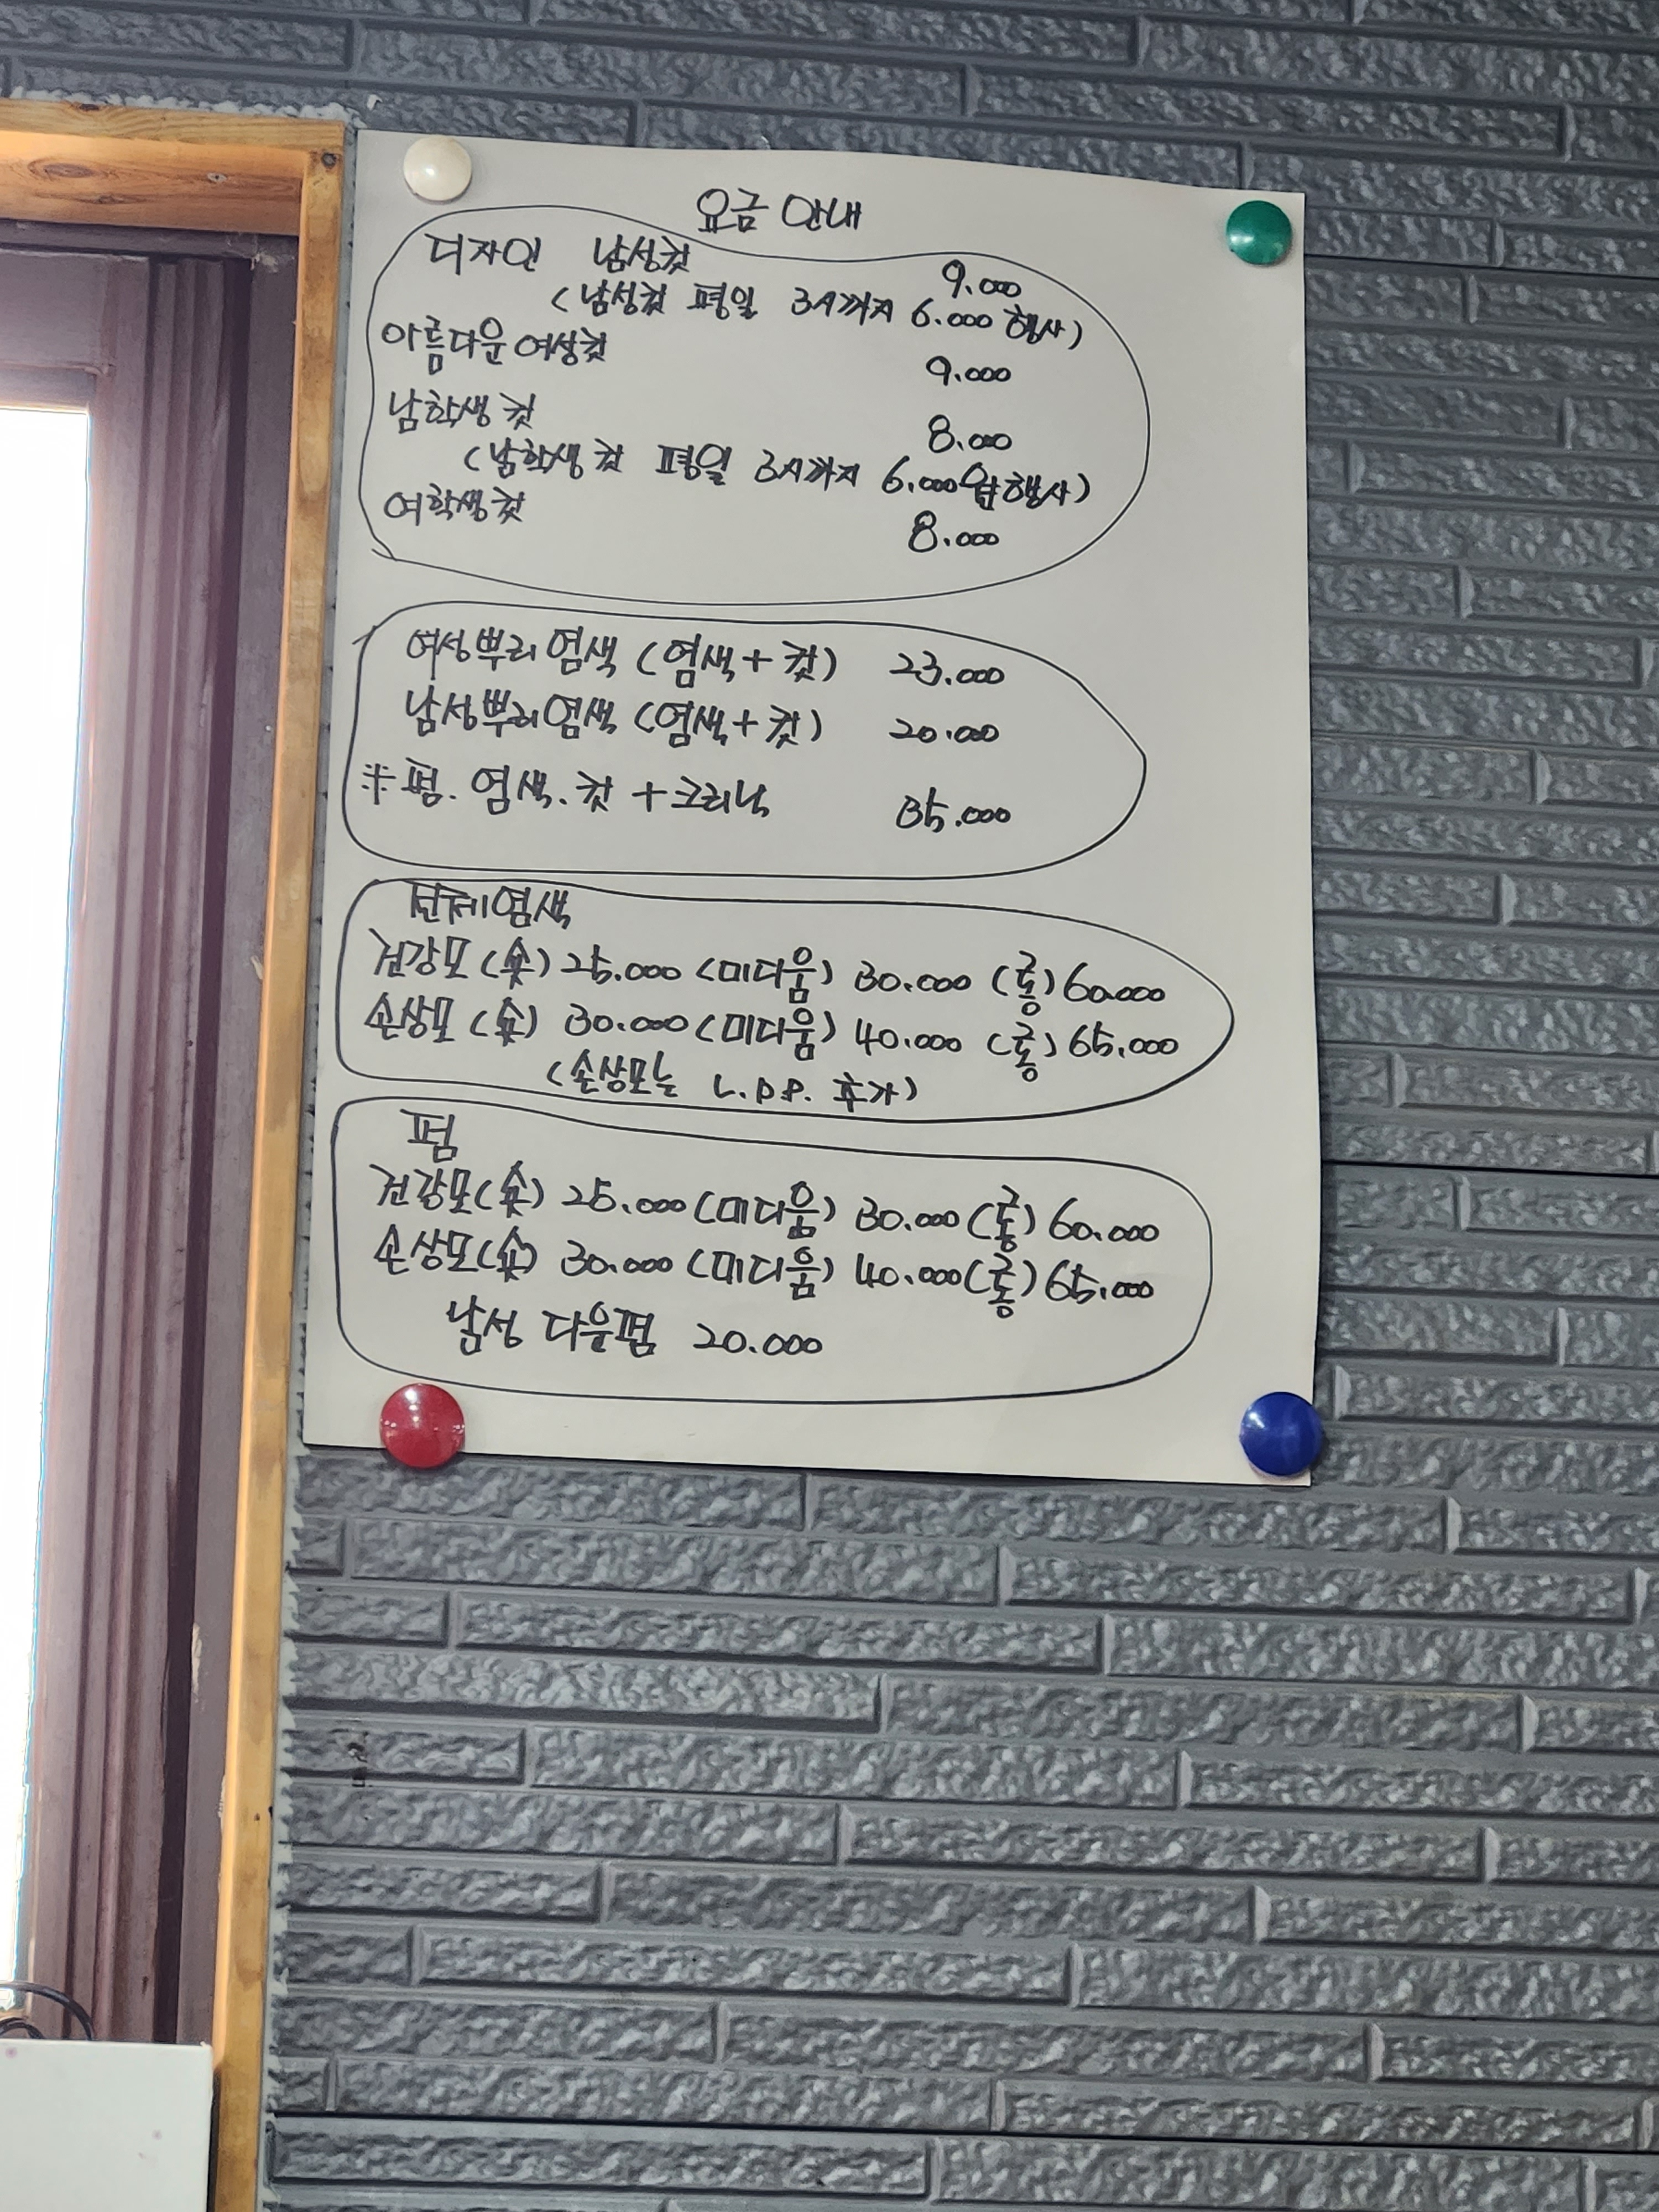 요금 안내
디자인 남성컷 9.000
(남성컷 평일 3시까지 6.000 행사)
아름다운 여성컷 9.000
남학생 컷 8.000
(남학생 컷 평일 3시까지 6.000원 행사)
여학생컷 8.000
여성뿌리염색 (염색+컷) 23.000
남성뿌리염색 (염색+컷) 20.000
※펌.염색.컷 + 크리닉 35.000
전체염색
건강모 (숏) 25.000 (미디움) 30.000 (롱) 60.000
손상모 (숏) 30.000 (미디움) 40.000 (롱) 65.000
(손상모는 L.P.P. 추가)
펌
건강모(숏) 25.000 (미디움) 30.000 (롱) 60.000
손상모(숏) 30.000 (미디움) 40.000 (롱) 65.000
남성 다운펌 20.000